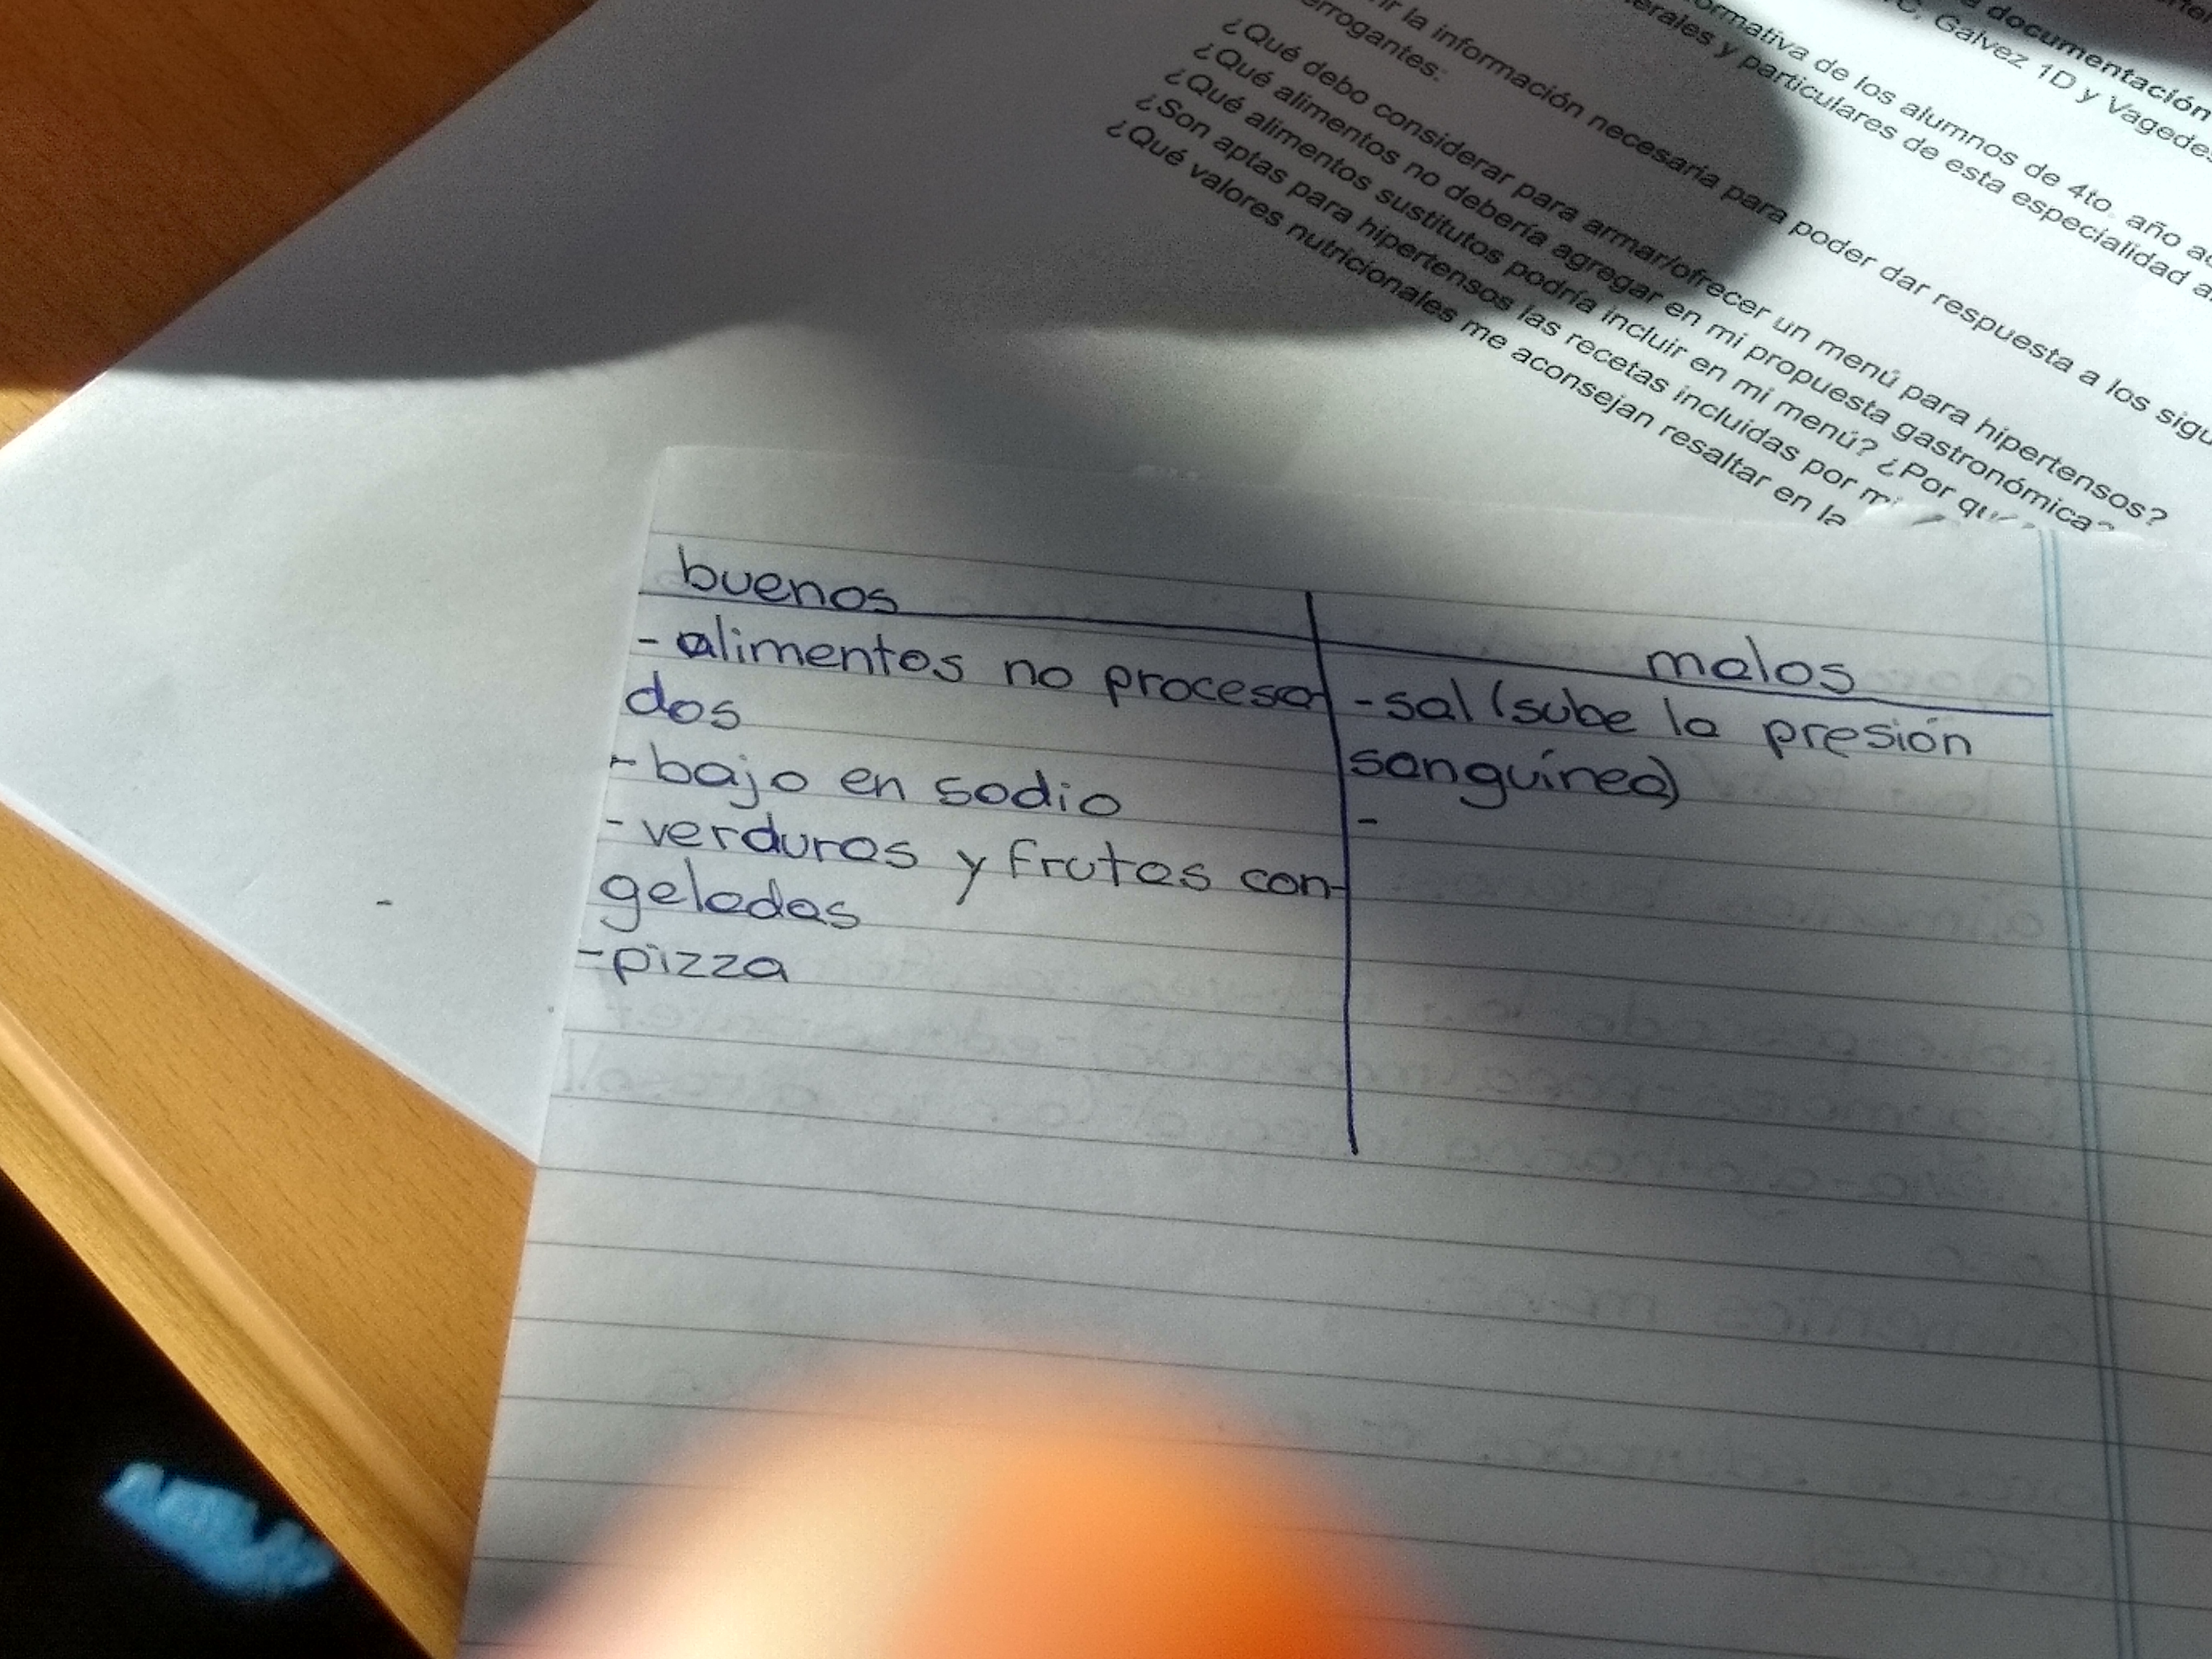 documentación
C, Galvez 1D y Vagedes
ormativa de los alumnos de 4to. año
erales y particulares de esta especialidad
ir la información necesaria para poder dar respuesta a los sigu
errogantes:
¿Qué debo considerar para armar/ofrecer un menú para hipertensos?
¿Qué alimentos no debería agregar en mi propuesta gastronómica?
¿Qué alimentos sustitutos podría incluir en mi menú? ¿Por qu
¿Son aptas para hipertensos las recetas incluidas por m
¿Qué valores nutricionales me aconsejan resaltar en la
buenos
- alimentos no procesa
dos
- bajo en sodio
- verduras y frutas con-
geladas
- pizza
malos
- sal (sube la presión
sanguínea)
-